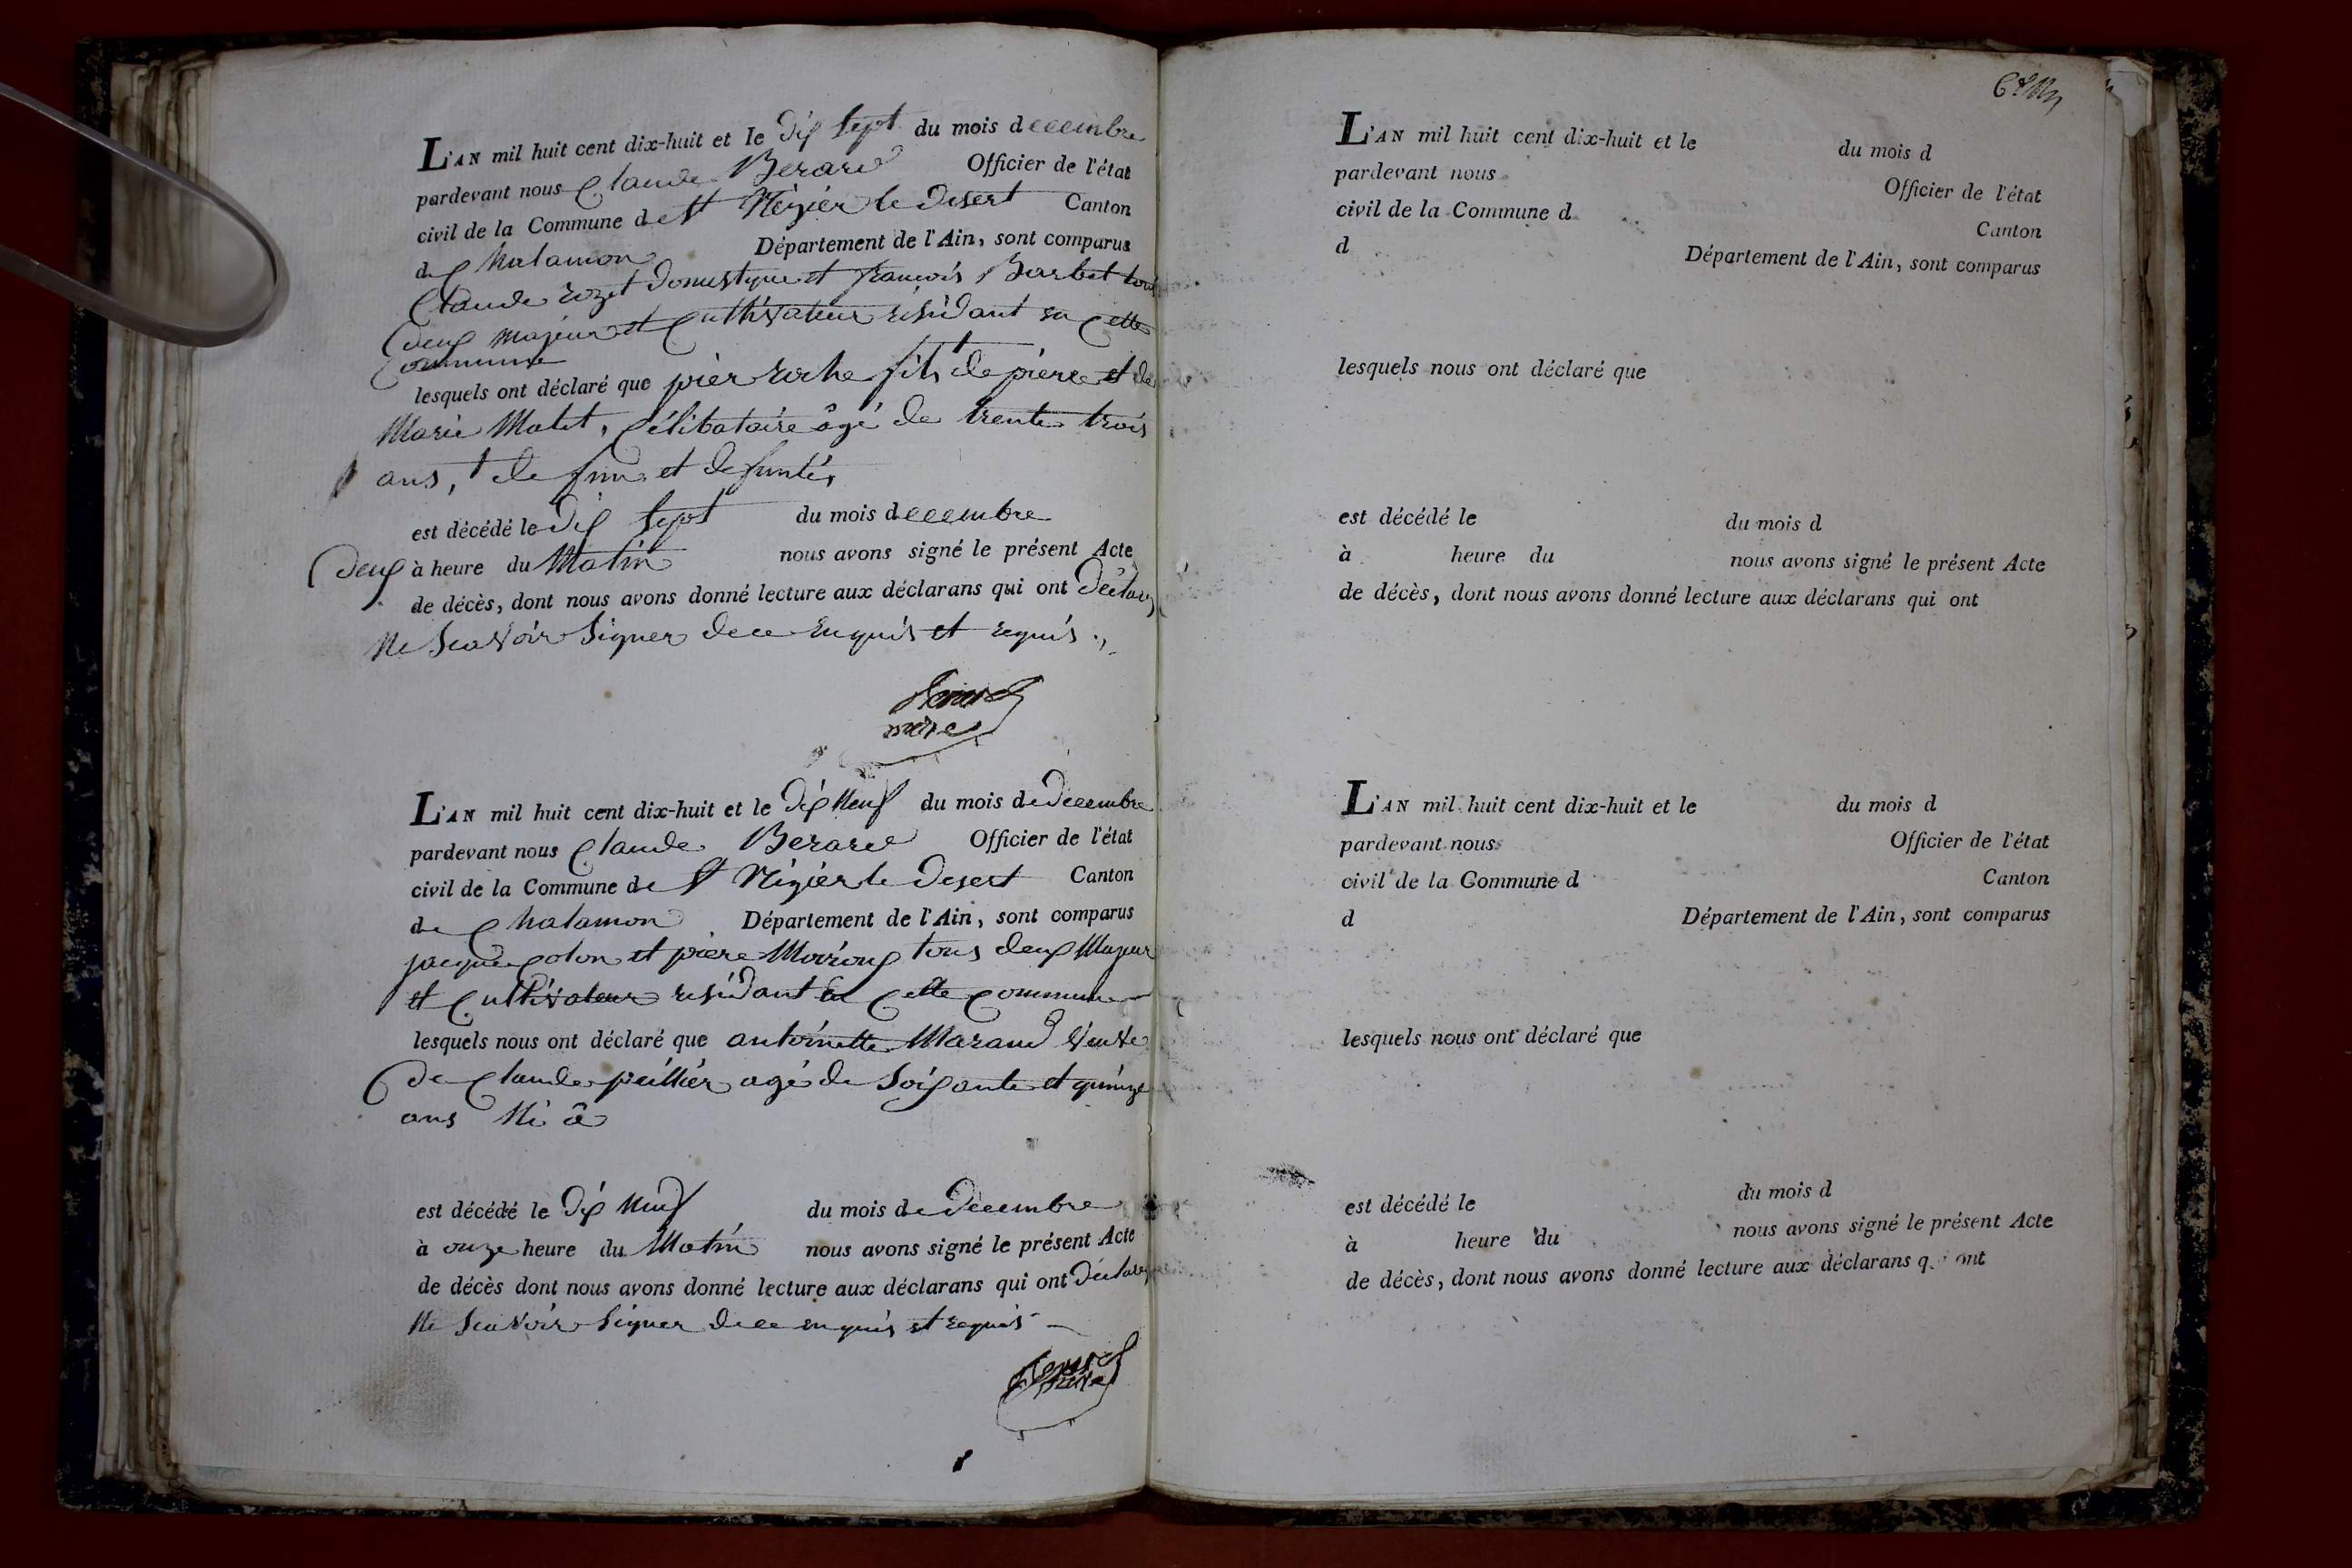 L'AN mil huit cent dix-huit et le Dix Sept du mois decembre
pardevant nous Claude Berard Officier de l'état
civil de la Commune de St Nizier le Desert Canton
de Chalamon Département de l'Ain, sont comparus
Claude rozet Domestique et francois Barbet tous
Deux majeur et Cultivateur résidant en Cette
Commune
lesquels ont déclaré que pier roche fils † de pierre et de
Marie Matet, Célibataire âgé de trente trois
ans, † de funt et defuntes,
est décédé le Dix Sept du mois decembre
Deux à heure du Matin nous avons signé le présent Acte
de décès, dont nous avons donné lecture aux déclarans qui ont Déclarez
Ne Scavoir Signer de ce Enquis et requis
Berard
maire
L'AN mil huit cent dix-huit et le Dix Neuf du mois de Decembre
pardevant nous Claude Berard Officier de l'état
civil de la Commune de St Nizier le Desert Canton
de Chalamon Département de l'Ain, sont comparus
jacque colon et piere tous deux Majeur
et Cultivateur résidant en Cette Commune
lesquels nous ont déclaré que antoinette Maraud Veuve
De Claude peillier agé de Soixante et quinze
ans Né â
est décédé le Dix Neuf du mois de Decembre
à onze heure du Matin nous avons signé le présent Acte
de décès dont nous avons donné lecture aux déclarans qui ont Déclarez
Ne Scavoir Signer de ce enquis et requis
Berard
maire
L'AN mil huit cent dix-huit et le du mois d
pardevant nous Officier de l'état
civil de la Commune d Canton
d Département de l'Ain, sont comparus
lesquels nous ont déclaré que
est décédé le du mois d
à heure du nous avons signé le présent Acte
de décès, dont nous avons donné lecture aux déclarans qui ont
L'AN mil huit cent dix-huit et le du mois d
pardevant nous Officier de l'état
civil de la Commune d Canton
d Département de l'Ain, sont comparus
lesquels nous ont déclaré que
est décédé le du mois d
à heure du nous avons signé le présent Acte
de décès, dont nous avons donné lecture aux déclarans qui ont